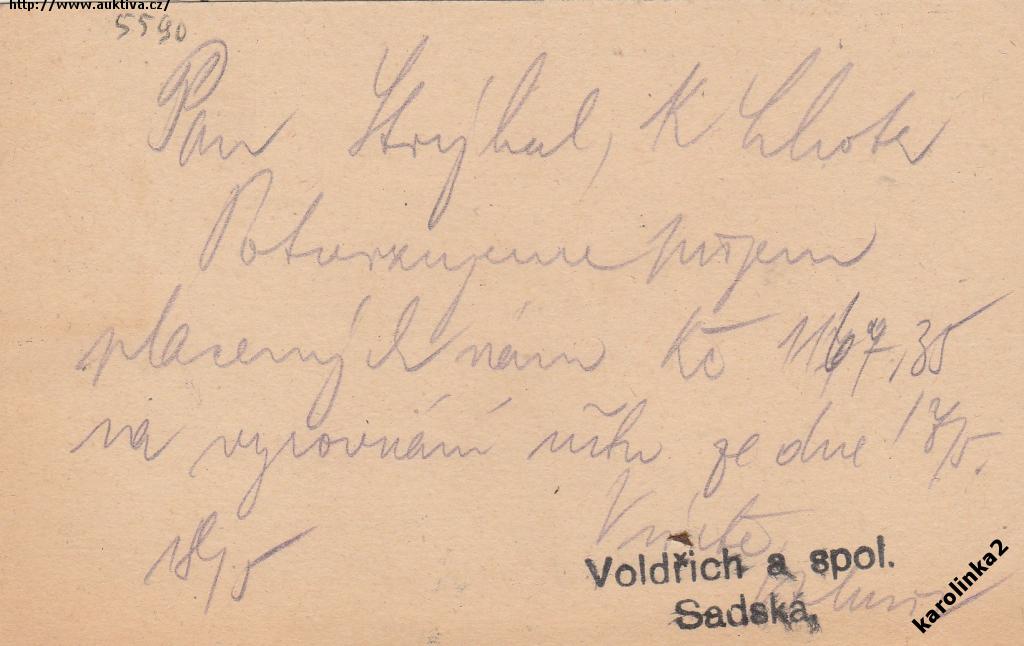 http://www.auktiva.cz/
5590
Pan Strýhal, K Lhota
Potvrzujeme příjem
placených nám Kč 1167,35
na vyrovnání účtu ze dne 17/5.
18/5
Voldřich a spol.
Sadská,
karolinka2